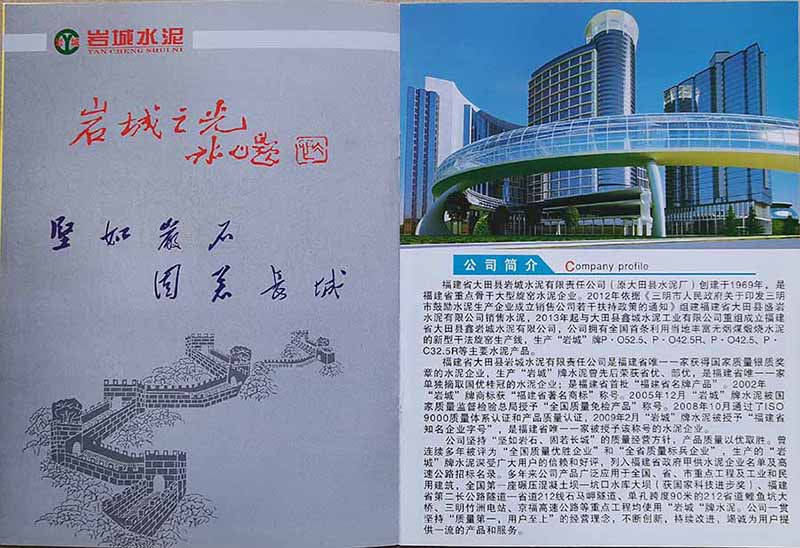 岩城水泥
YAN CHENG SHUI NI
岩城之光
冰心题
坚如岩石
固若长城
公司简介 Company profile
福建省大田县岩城水泥有限责任公司（原大田县水泥厂）创建于1969年，是
福建省重点骨干大型旋窑水泥企业。2012年依据《三明市人民政府关于印发三明
市鼓励水泥生产企业成立销售公司若干扶持政策的通知》组建福建省大田县盛岩
水泥有限公司销售水泥，2013年起与大田县鑫城水泥工业有限公司重组成立福建
省大田县鑫岩城水泥有限公司，公司拥有全国首条利用当地丰富无烟煤煅烧水泥
的新型干法旋窑生产线，生产“岩城”牌P·O52.5、P·O42.5R、P·O42.5、P·
C32.5R等主要水泥产品。
福建省大田县岩城水泥有限责任公司是福建省唯一一家获得国家质量银质奖
章的水泥企业，生产“岩城”牌水泥曾先后荣获省优、部优，是福建省唯一一家
单独摘取国优桂冠的水泥企业；是福建省首批“福建省名牌产品”。2002年
“岩城”牌商标获“福建省著名商标”称号。2005年12月“岩城”牌水泥被国
家质量监督检验总局授予“全国质量免检产品”称号。2008年10月通过了ISO
9000质量体系认证和产品质量认证，2009年2月“岩城”牌水泥被授予“福建省
知名企业字号”，是福建省唯一一家被授予该称号的水泥企业。
公司坚持“坚如岩石、固若长城”的质量经营方针，产品质量以优取胜。曾
连续多年被评为“全国质量优胜企业”和“全省质量标兵企业”，生产的“岩
城”牌水泥深受广大用户的信赖和好评，列入福建省政府甲供水泥企业名单及高
速公路招标名录。多年来公司产品广泛应用于全国、省、市重点工程及工业和民
用建筑，全国第一座碾压混凝土坝—坑口水库大坝（获国家科技进步奖）、福建
省第二长公路隧道—省道212线石马岬隧道、单孔跨度90米的212省道鲤鱼坑大
桥、三明竹洲电站、京福高速公路等重点工程均使用“岩城”牌水泥。公司一贯
坚持“质量第一，用户至上”的经营理念，不断创新，持续改进，竭诚为用户提
供一流的产品和服务。